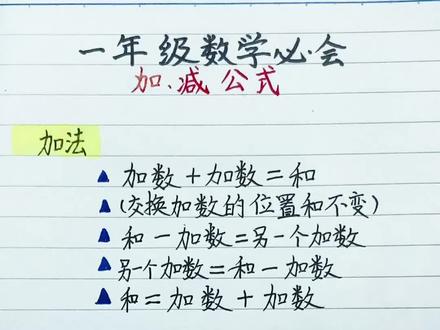 一年级数学必会
加、减公式
加法
▲ 加数+加数=和
▲ (交换加数的位置和不变)
▲ 和-加数=另一个加数
▲ 另一个加数=和-加数
▲ 和=加数+加数